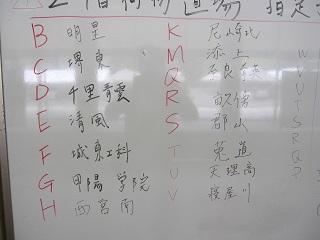 2階荷物置場 指定
B 明星
C 堺東
D 千里青雲
E 清風
F 城東工科
G 甲陽学院
H 西宮南
K 尼崎北
M 添上
Q 奈良
R 畝傍
S 郡山
T 菟道
U 天理高
V 寝屋川
W
V
U
T
S
R
Q
P